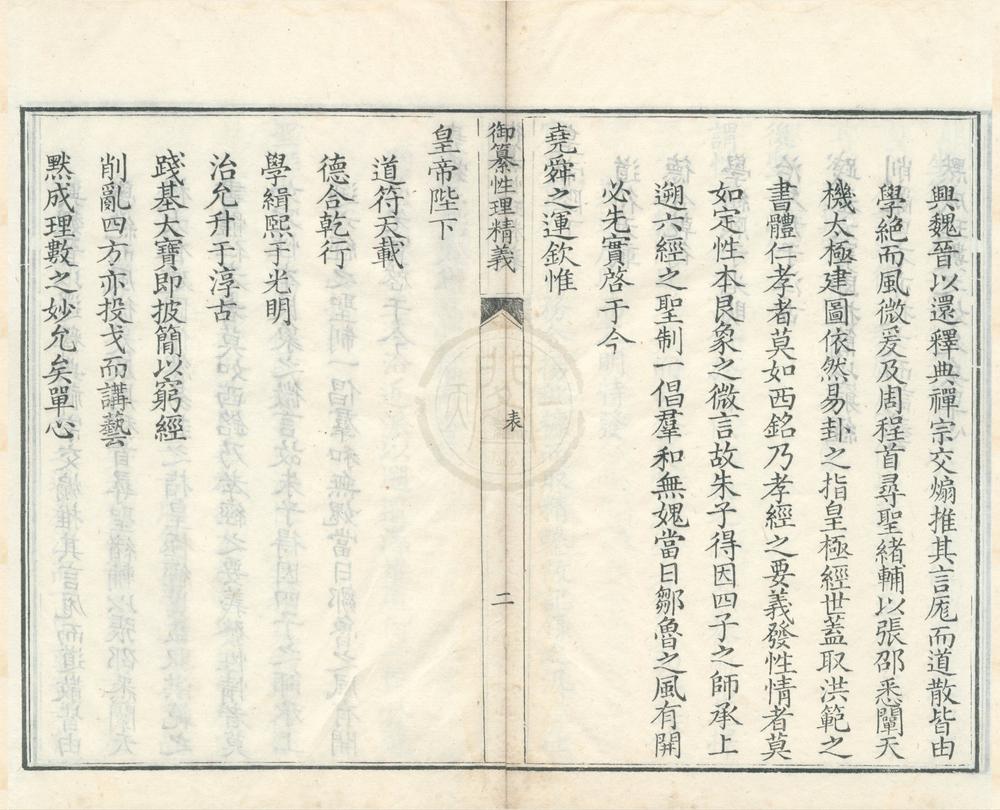 興魏晉以還釋典禪宗交煽推其言厖而道散皆由
學絕而風微爰及周程首尋聖緒輔以張邵悉闡天
機太極建圖依然易卦之指皇極經世蓋取洪範之
書體仁孝者莫如西銘乃孝經之要義發性情者莫
如定性本艮象之微言故朱子得因四子之師承上
遡六經之聖制一倡羣和無媿當日鄒魯之風有開
必先實啓于今
堯舜之運欽惟
御纂性理精義
表
二
皇帝陛下
道符天載
德合乾行
學緝熙于光明
治允升于淳古
踐基大寶即披簡以窮經
削亂四方亦投戈而講藝
默成理數之妙允矣單心